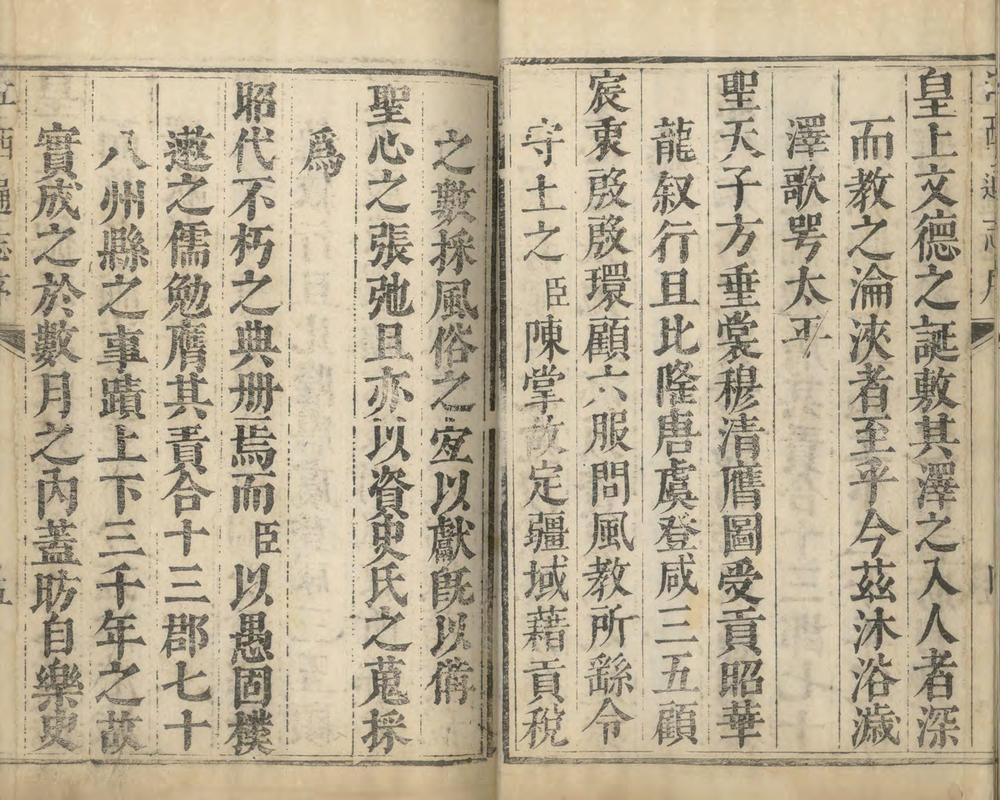 皇上文德之誕敷其澤之入人者深
而教之淪浹者至乎今茲沐浴濊
澤歌咢太平
聖天子方垂裳穆清膺圖受貢昭華
龍叙行且比隆唐虞登咸三五顧
宸衷殷殷環顧六服問風教所繇令
守土之臣陳掌故定疆域藉貢稅
之數採風俗之宐以獻旣以備
聖心之張弛且亦以資史氏之蒐採
爲
昭代不朽之典册焉而臣以愚固樸
遬之儒勉膺其責合十三郡七十
八州縣之事蹟上下三千年之故
實成之於數月之內蓋昉自樂史